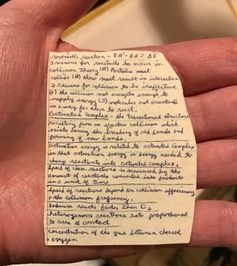 reversible reaction - Ea' - Ea = ΔE
2 reasons for reactants to occur in
collision theory (A) Particles must
collide (B) this must result in interaction
2 reasons for collision to be ineffective
(1) the collision not enough to
supply energy (2) molecules not oriented
in a way for them to react.
Activated Complex - the transitional structure
resulting from an effective collision which
exists during the breaking of old bonds and
forming of new bonds.
activation energy is related to activated complex
in that activation energy is energy needed to
change reactants into activated complex.
Speed of chem reactions is measured by the
amount of reactants converted into products
in a unit of time
Speed of reactions depend on collision efficiency
+ the collision frequency.
reacts faster than
heterogeneous reactions rate proportional
to area of contact
concentration of the gas between
oxygen